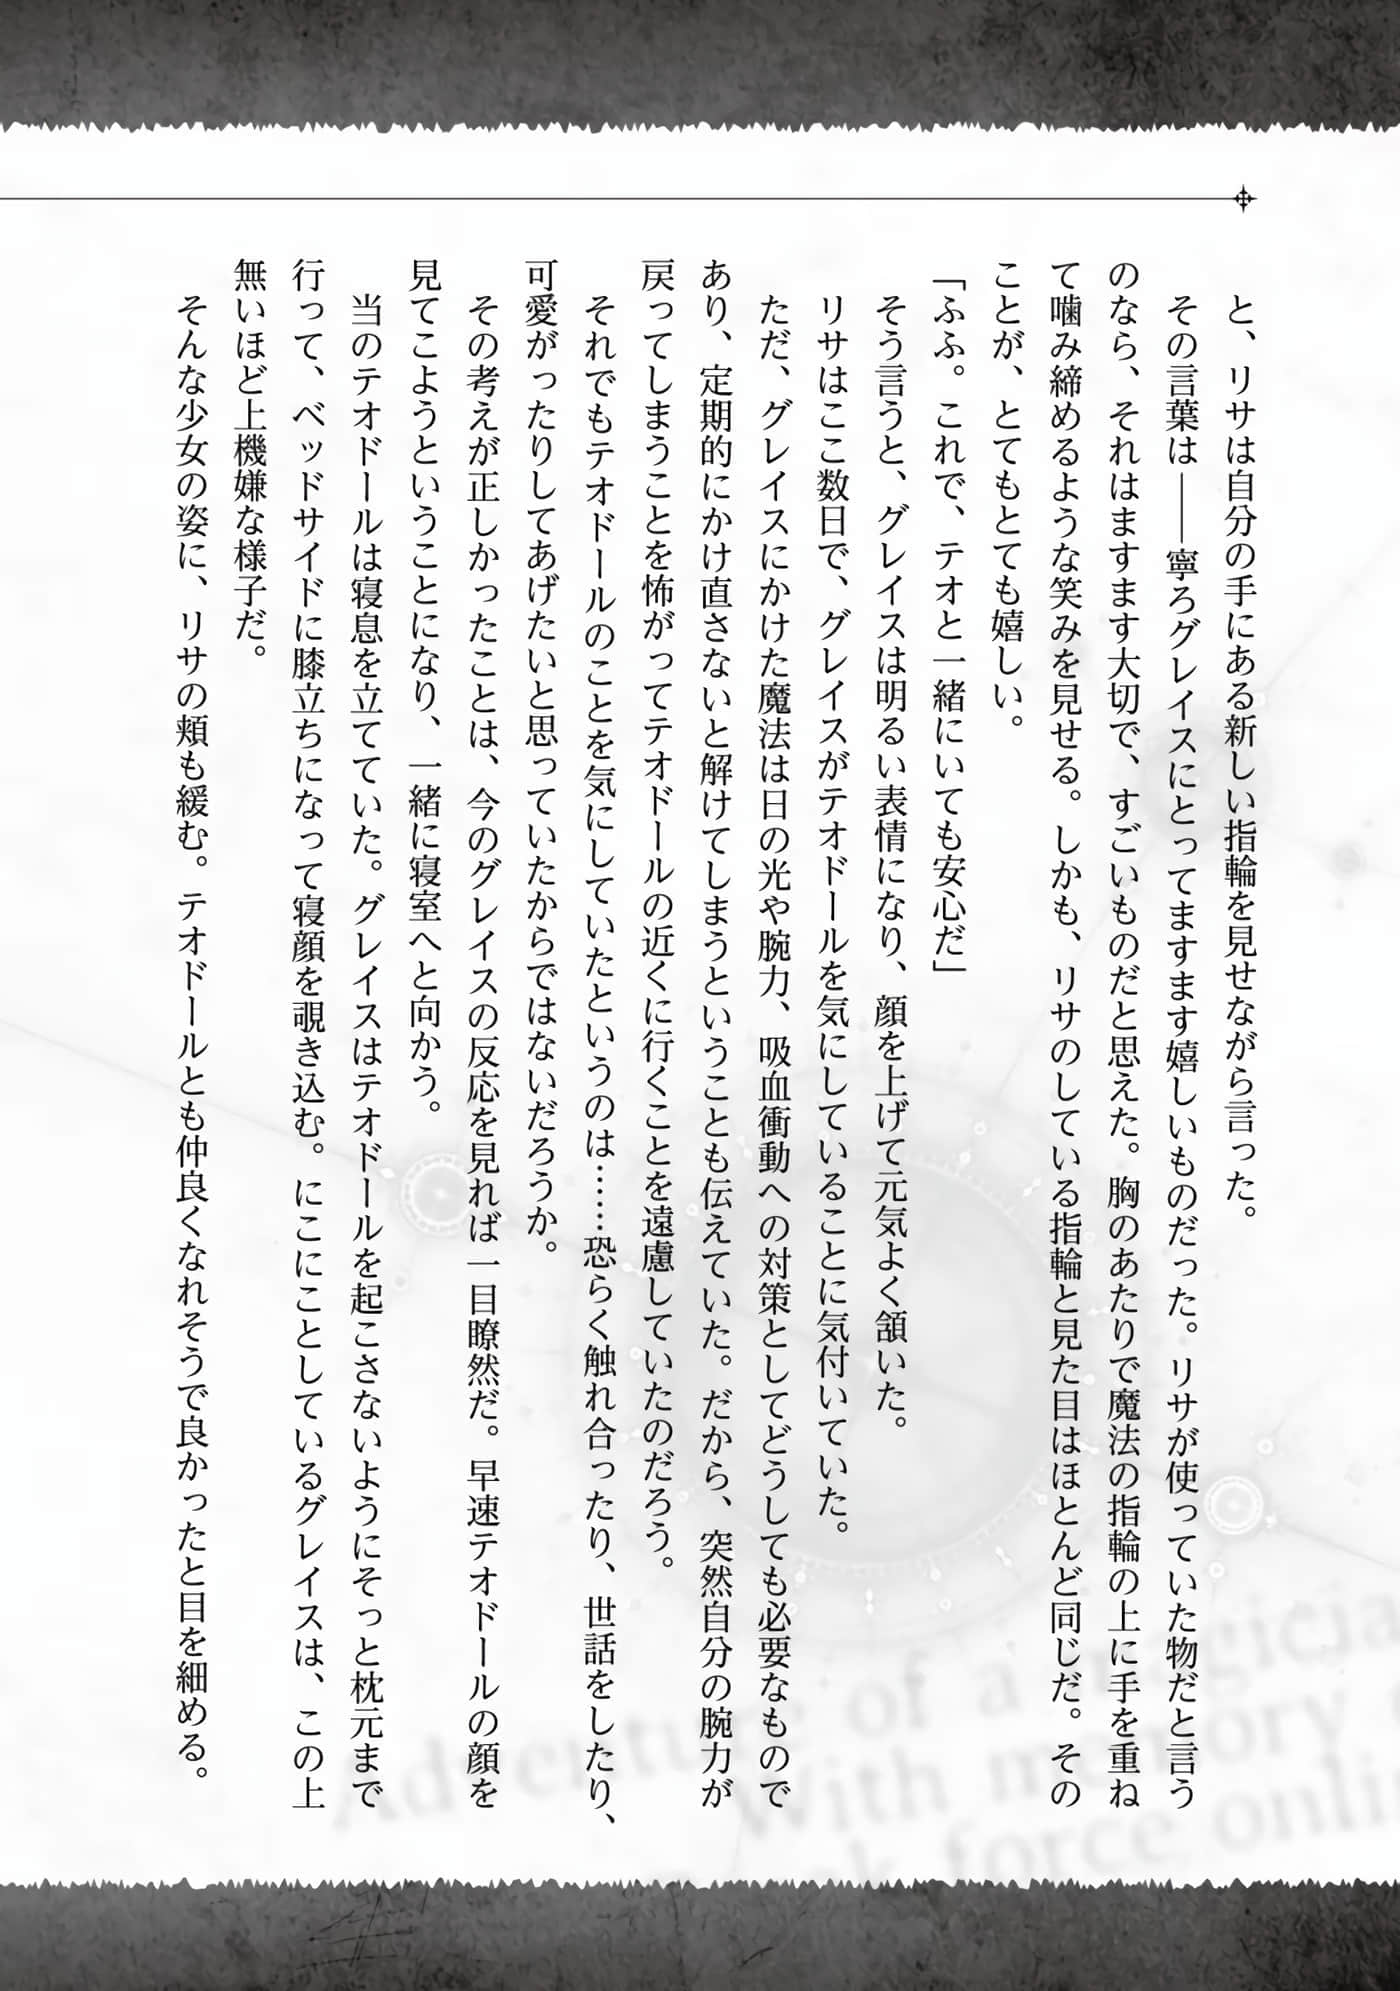 と、リサは自分の手にある新しい指輪を見せながら言った。
その言葉は――寧ろグレイスにとってますます嬉しいものだった。リサが使っていた物だと言う
のなら、それはますます大切で、すごいものだと思えた。胸のあたりで魔法の指輪の上に手を重ね
て噛み締めるような笑みを見せる。しかも、リサのしている指輪と見た目はほとんど同じだ。その
ことが、とてもとても嬉しい。
「ふふ。これで、テオと一緒にいても安心だ」
そう言うと、グレイスは明るい表情になり、顔を上げて元気よく頷いた。
リサはここ数日で、グレイスがテオドールを気にしていることに気付いていた。
ただ、グレイスにかけた魔法は日の光や腕力、吸血衝動への対策としてどうしても必要なもので
あり、定期的にかけ直さないと解けてしまうということも伝えていた。だから、突然自分の腕力が
戻ってしまうことを怖がってテオドールの近くに行くことを遠慮していたのだろう。
それでもテオドールのことを気にしていたというのは……恐らく触れ合ったり、世話をしたり、
可愛がったりしてあげたいと思っていたからではないだろうか。
その考えが正しかったことは、今のグレイスの反応を見れば一目瞭然だ。早速テオドールの顔を
見てこようということになり、一緒に寝室へと向かう。
当のテオドールは寝息を立てていた。グレイスはテオドールを起こさないようにそっと枕元まで
行って、ベッドサイドに膝立ちになって寝顔を覗き込む。にこにことしているグレイスは、この上
無いほど上機嫌な様子だ。
そんな少女の姿に、リサの頬も緩む。テオドールとも仲良くなれそうで良かったと目を細める。
Adventure of a magicia
With memory
k force onli